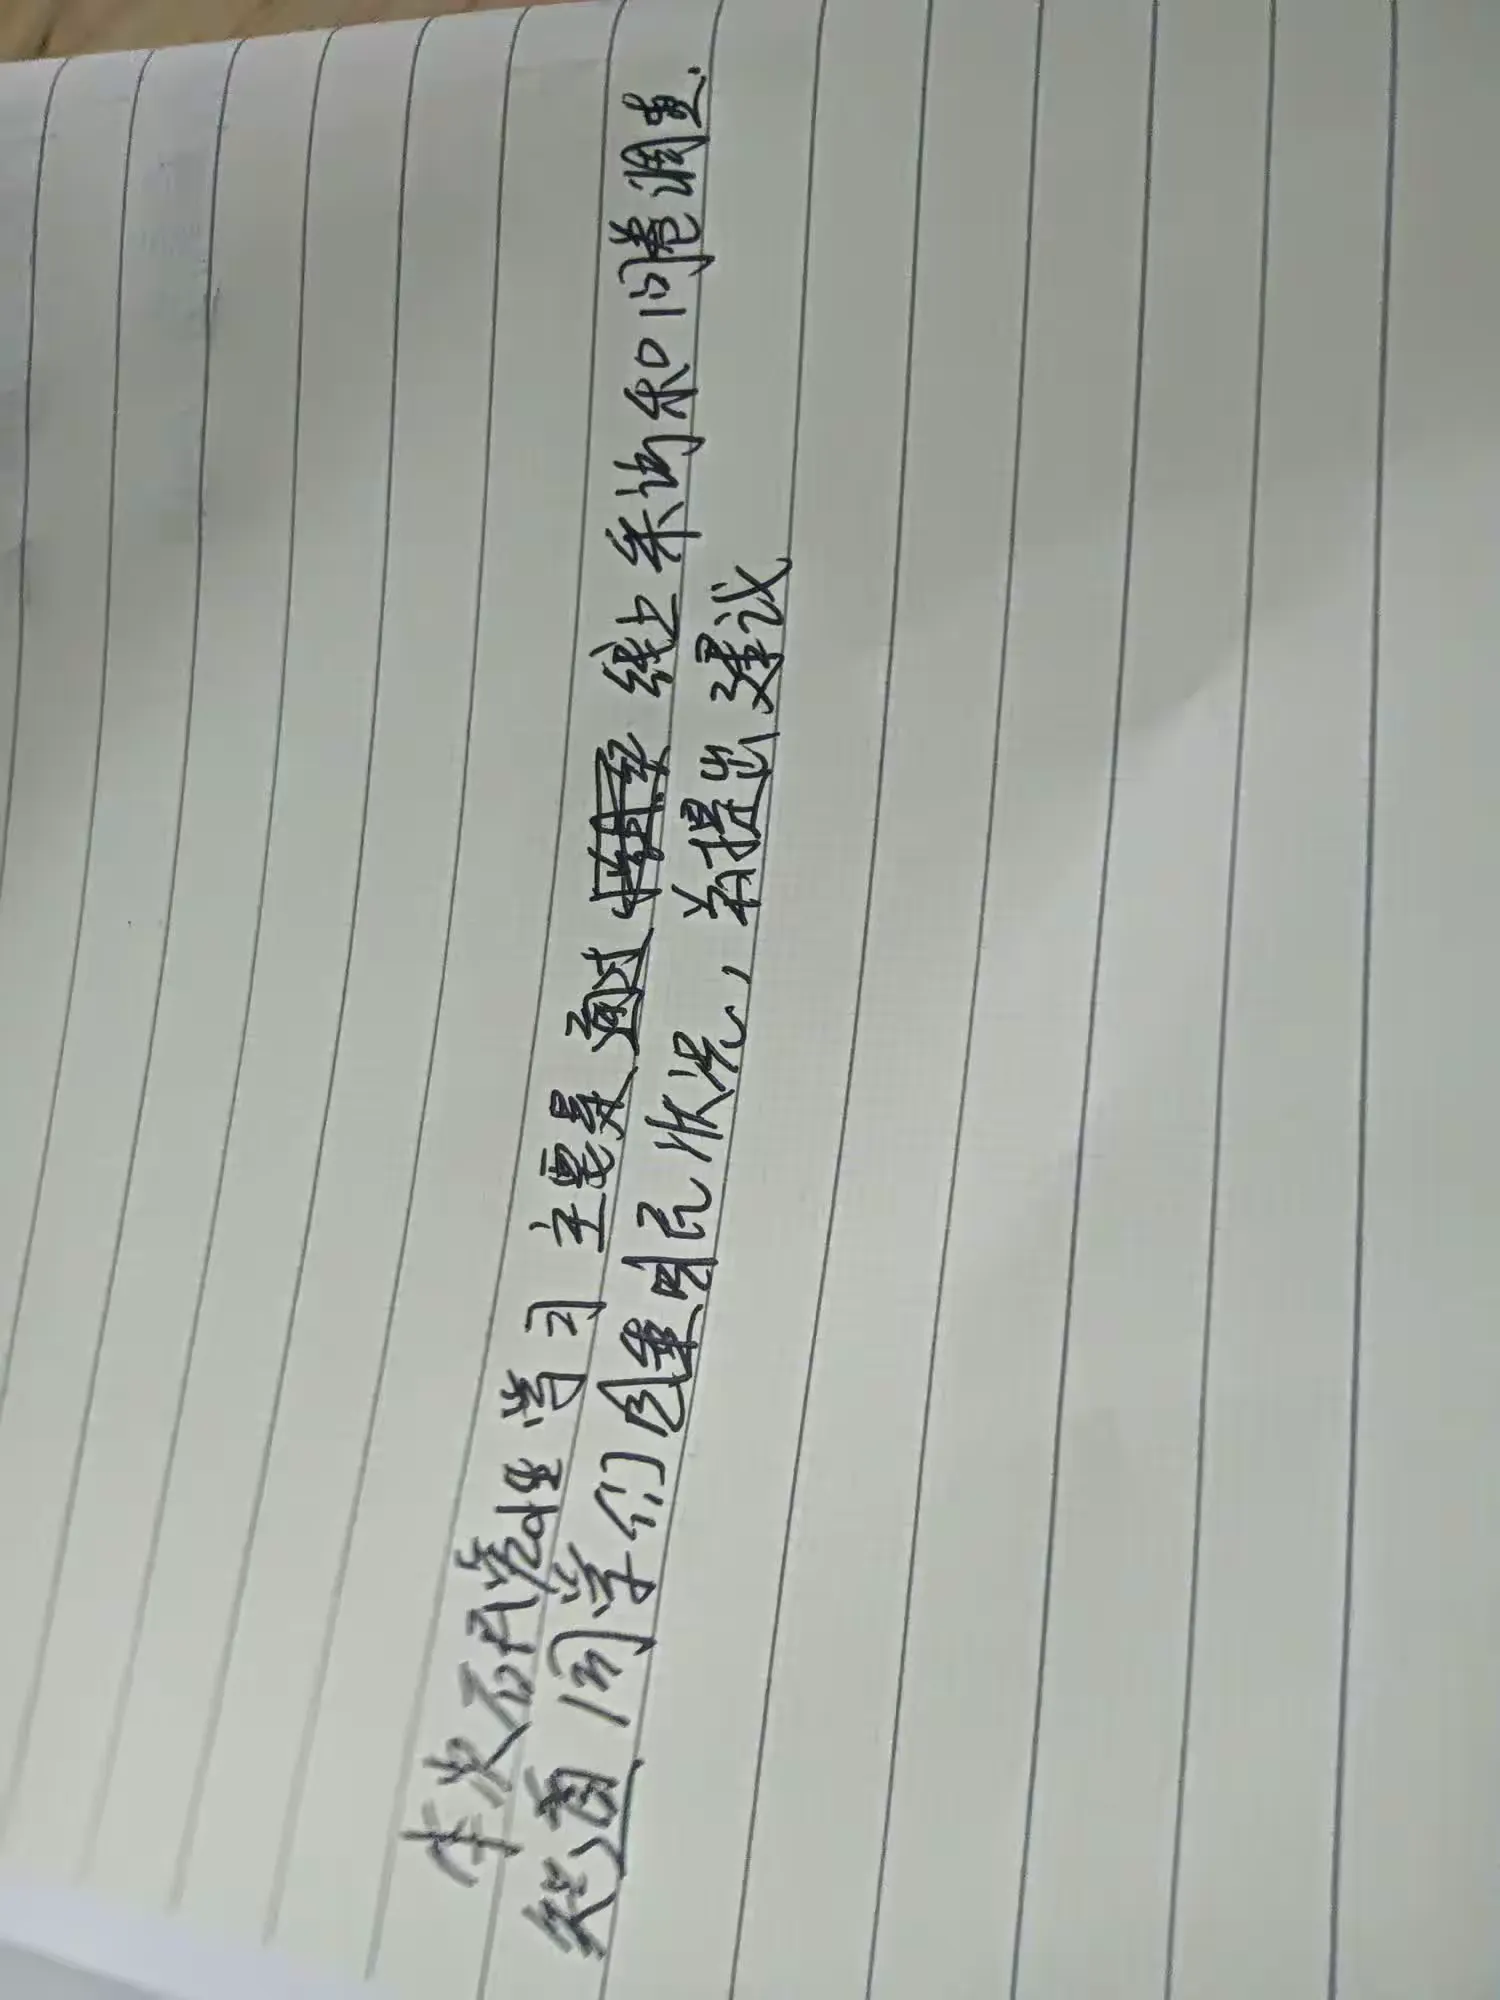 本次研究性学习主要是通过线上采访和问卷调查.
知道同学们的睡眠状况，并提出建议